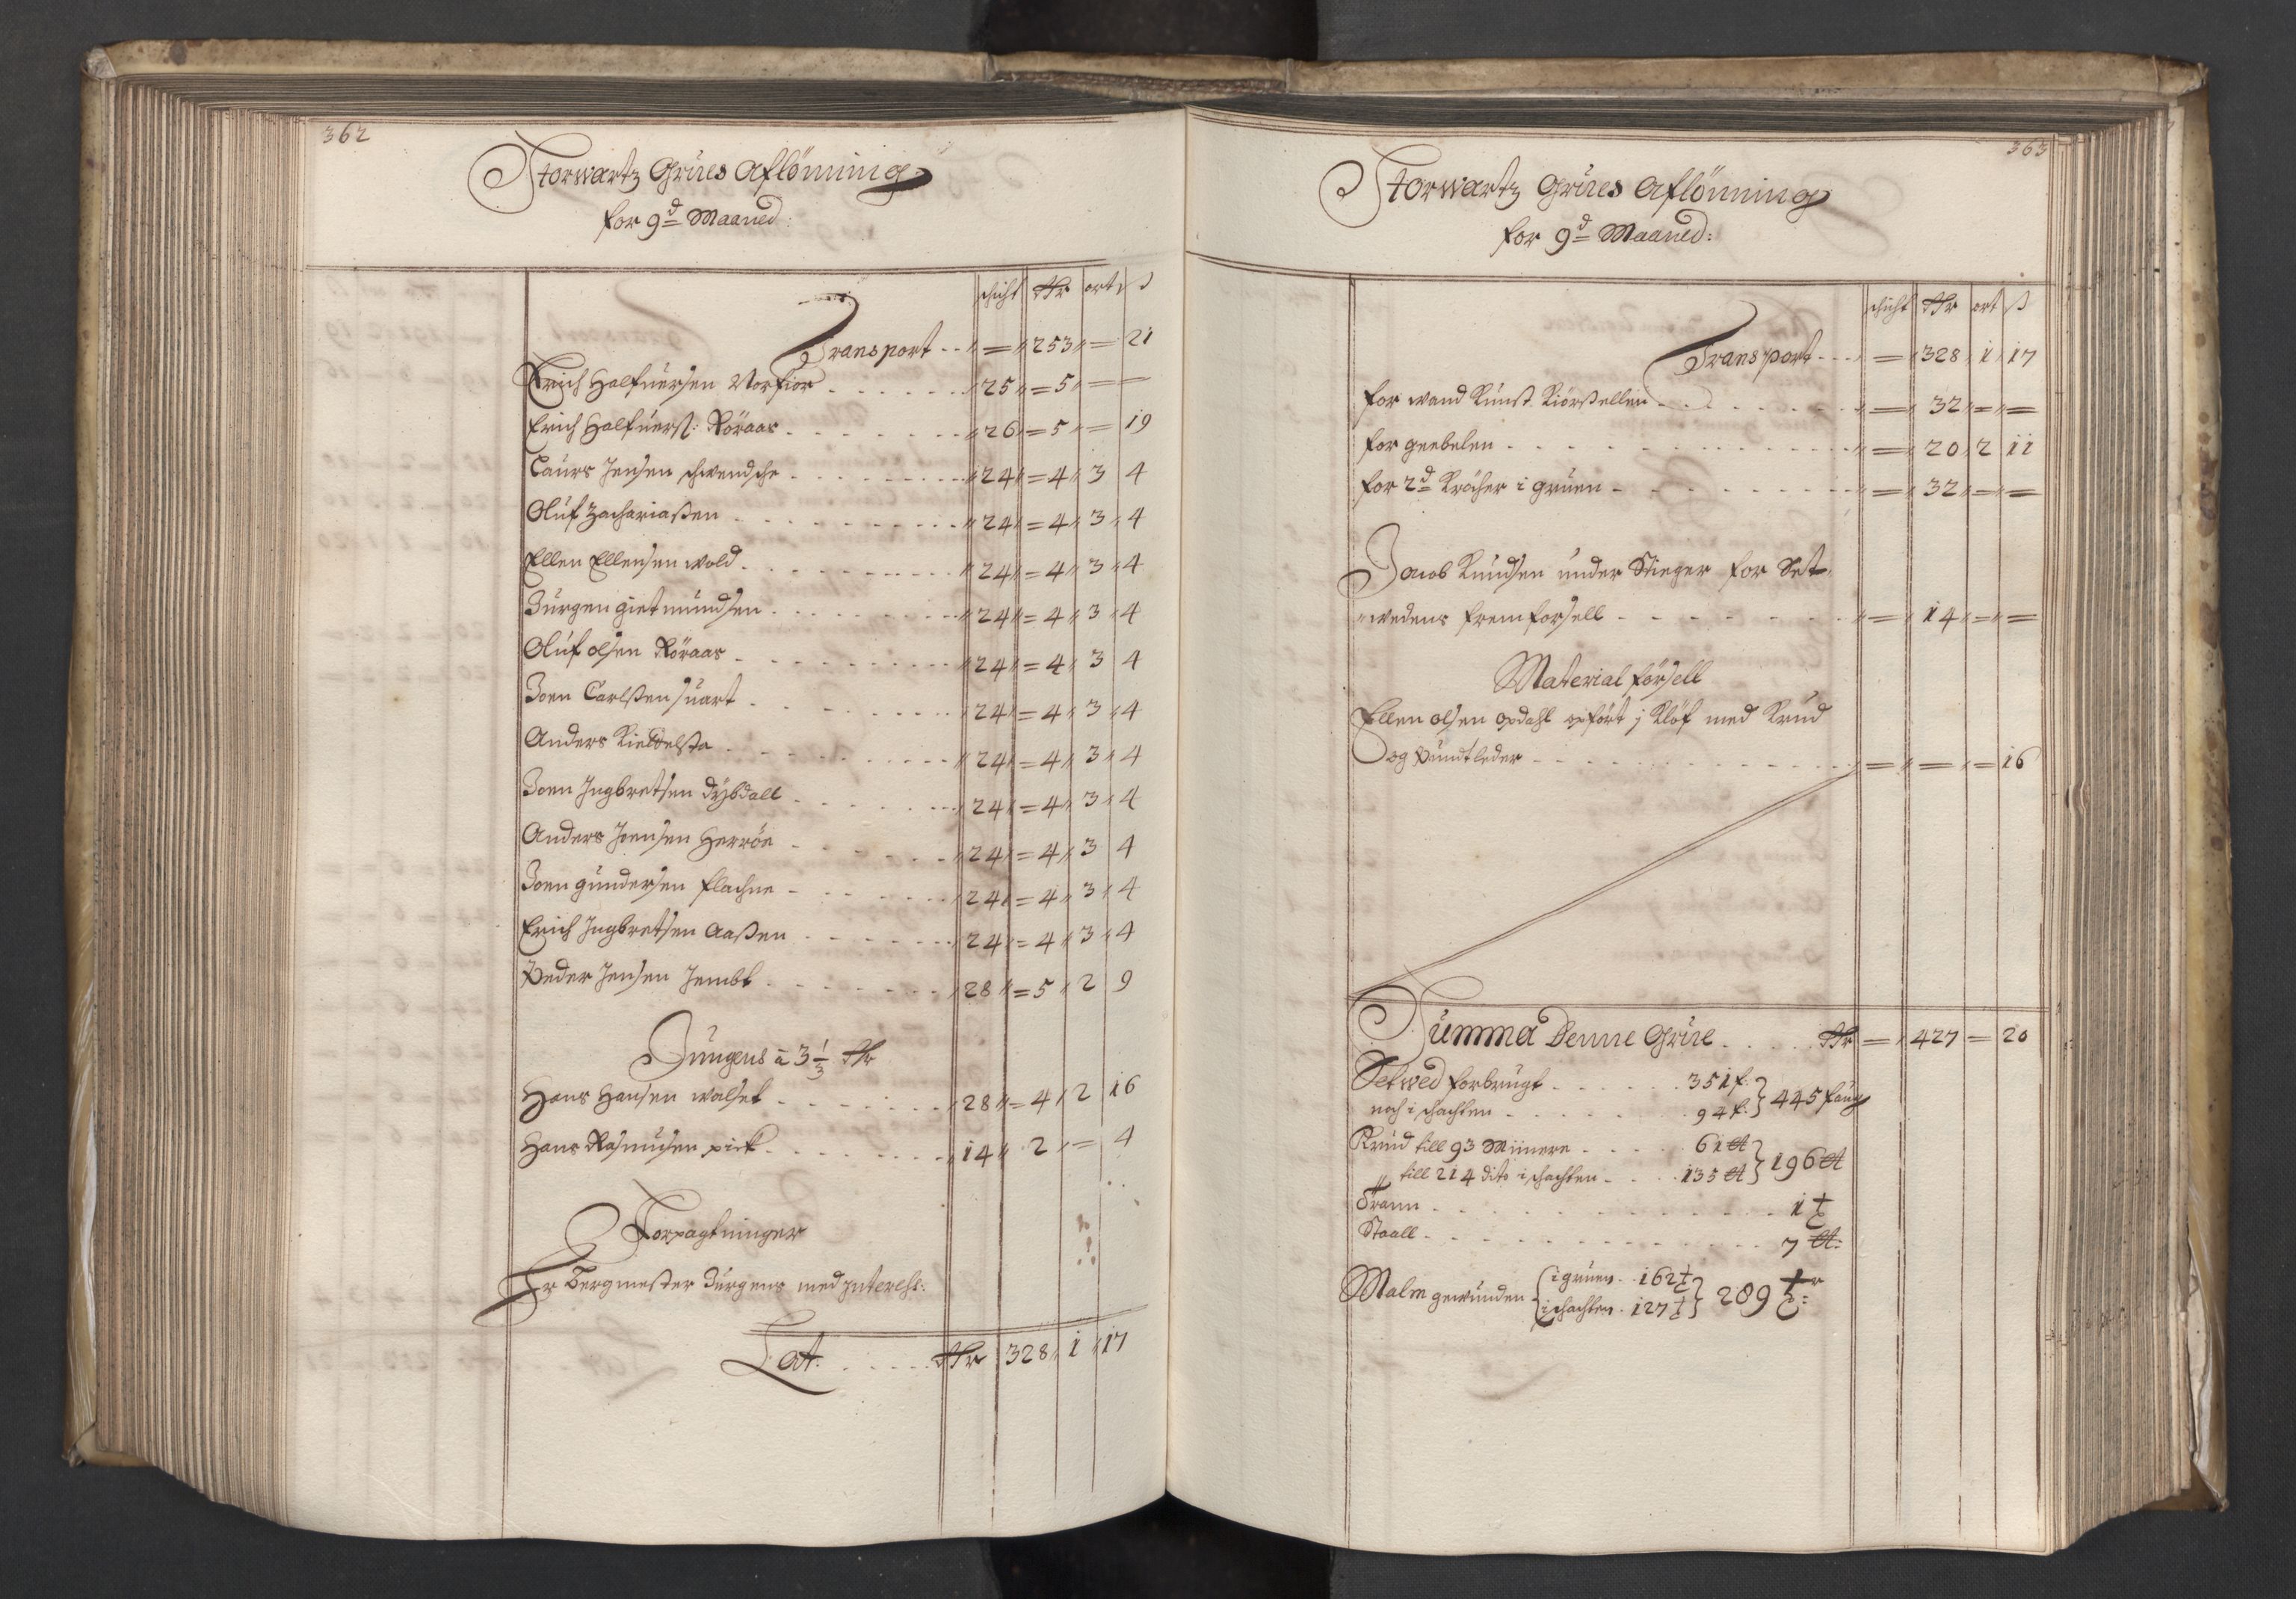 362
Storwartz Grues Aflönning
for 9d Maaned:
schicht Rdr ort ß
Transport - - = 253 = 21
Erich Halfuersen Vorfior - - - 25 = 5 = =
Erich Halfuers: Röraas - - - 26 = 5 = 19
Laurs Jensen schwendsche - - - 24 = 4 3 4
Oluf Zachariaßen - - - 24 = 4 3 4
Ellen Ellensen wold - - - 24 = 4 3 4
Jürgen gietmundsen - - - 24 = 4 3 4
Oluf olsen Röraas - - - 24 = 4 3 4
Joen Carlßen suart - - - 24 = 4 3 4
Anders Kiettelsta - - - 24 = 4 3 4
Joen Ingbretsen dÿbdall - - - 24 = 4 3 4
Anders Joensen Herröe - - - 24 = 4 3 4
Joen gundersen flachne - - - 24 = 4 3 4
Erich Ingbretsen Aaßen - - - 24 = 4 3 4
Peder Jensen Jembt - - - 28 = 5 2 9
Jungens a 3 1/3 Rdr
Hans Hansen walset - - - 28 = 4 2 16
Hans Rasmusen pick - - - 14 2 = 4
Forpagtninger
Hr Bergmester Jürgens med Interehs:
Lat. - - - Rdr 328 1 17
363
Storwartz Grues Aflönning
for 9d Maaned:
schicht Rdr ort ß
Transport - - - = 328 1 17
for wand Kunst Kiörstellen - - - = 32 = =
for geebelen - - - = 20 2 11
for 2d Kräher i gruen - - - = 32 = =
Jacob Knudsen under Stieger for Set-
wedens fremforsell - - - = 14 = =
Material försell
Ellen olsen opdahl opfört j Klöf med Krud
og Pundtleder - - - = = = 16
Summa Denne Grue - - - Rdr = 427 = 20
Setwed forbrugt - - - 351 f: } 445 faug
noch i schachten - - - 94 f: }
Krud till 93 Miinere - - - 61 ℔ } 196 ℔
" till 214 dito i schachten - - - 135 ℔ }
Trann - - - 1 t
Staall - - - 7 ℔:
Malm gewunden { i gruen - - 162 t } 289 tr:
{ i schachten - 127 t }